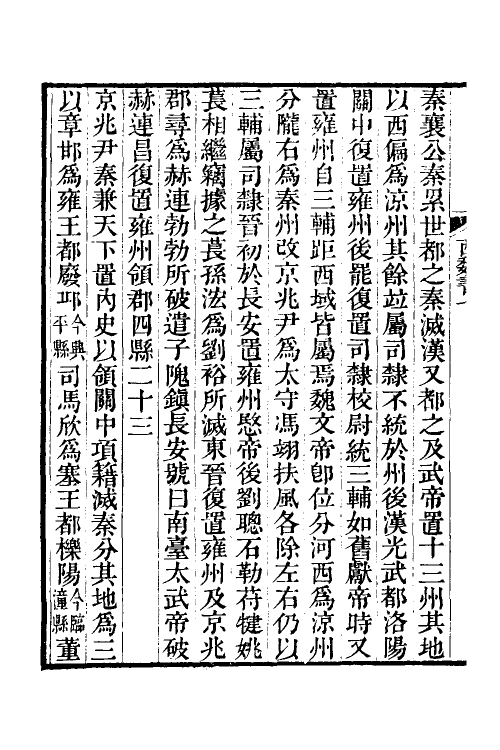 秦襄公秦累世都之秦滅漢又都之及武帝置十三州其地
以西偏爲涼州其餘竝屬司隸不統於州後漢光武都洛陽
關中復置雍州後罷復置司隸校尉統三輔如舊獻帝時又
置雍州自三輔距西域皆屬焉魏文帝卽位分河西爲涼州
分隴右爲秦州改京兆尹爲太守馮翊扶風各除左右仍以
三輔屬司隸晉初於長安置雍州愍帝後劉聰石勒苻犍姚
萇相繼竊據之萇孫泓爲劉裕所滅東晉復置雍州及京兆
郡尋爲赫連勃勃所破遣子隗鎭長安號曰南臺太武帝破
赫連昌復置雍州領郡四縣二十三
京兆尹秦兼天下置內史以領關中項籍滅秦分其地爲三
以章邯爲雍王都廢邱今興平縣司馬欣爲塞王都櫟陽今臨潼縣董